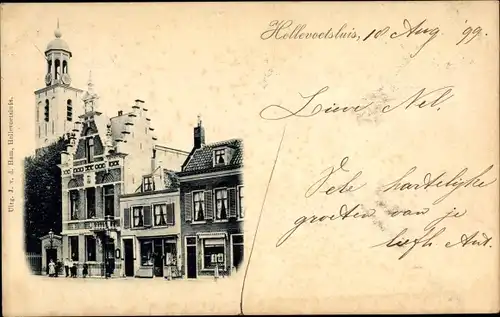 Hellevoetsluis, 18 Aug. '99.
Lieve Nel,
Vele hartelijke
groeten van je
liefh. Ant.
Uitg. J. v. d. Ham, Hellevoetsluis.